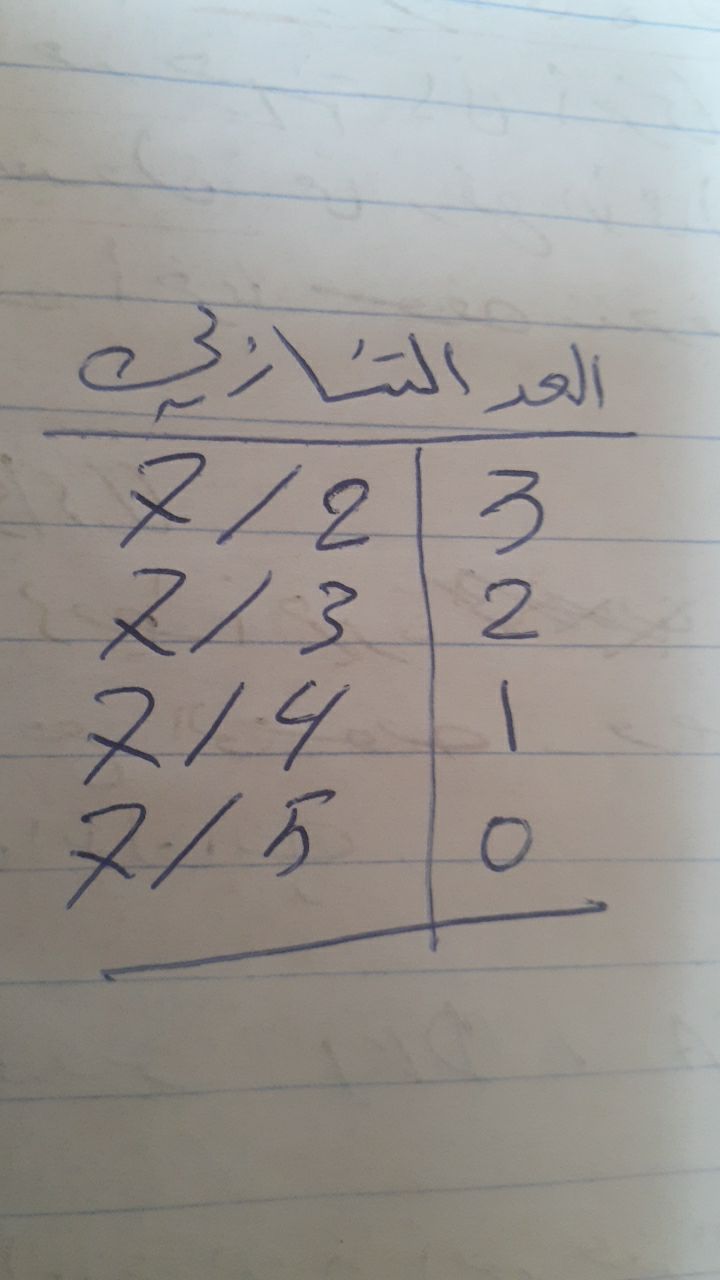 العد التنازلي
7/2 3
7/3 2
7/4 1
7/5 0